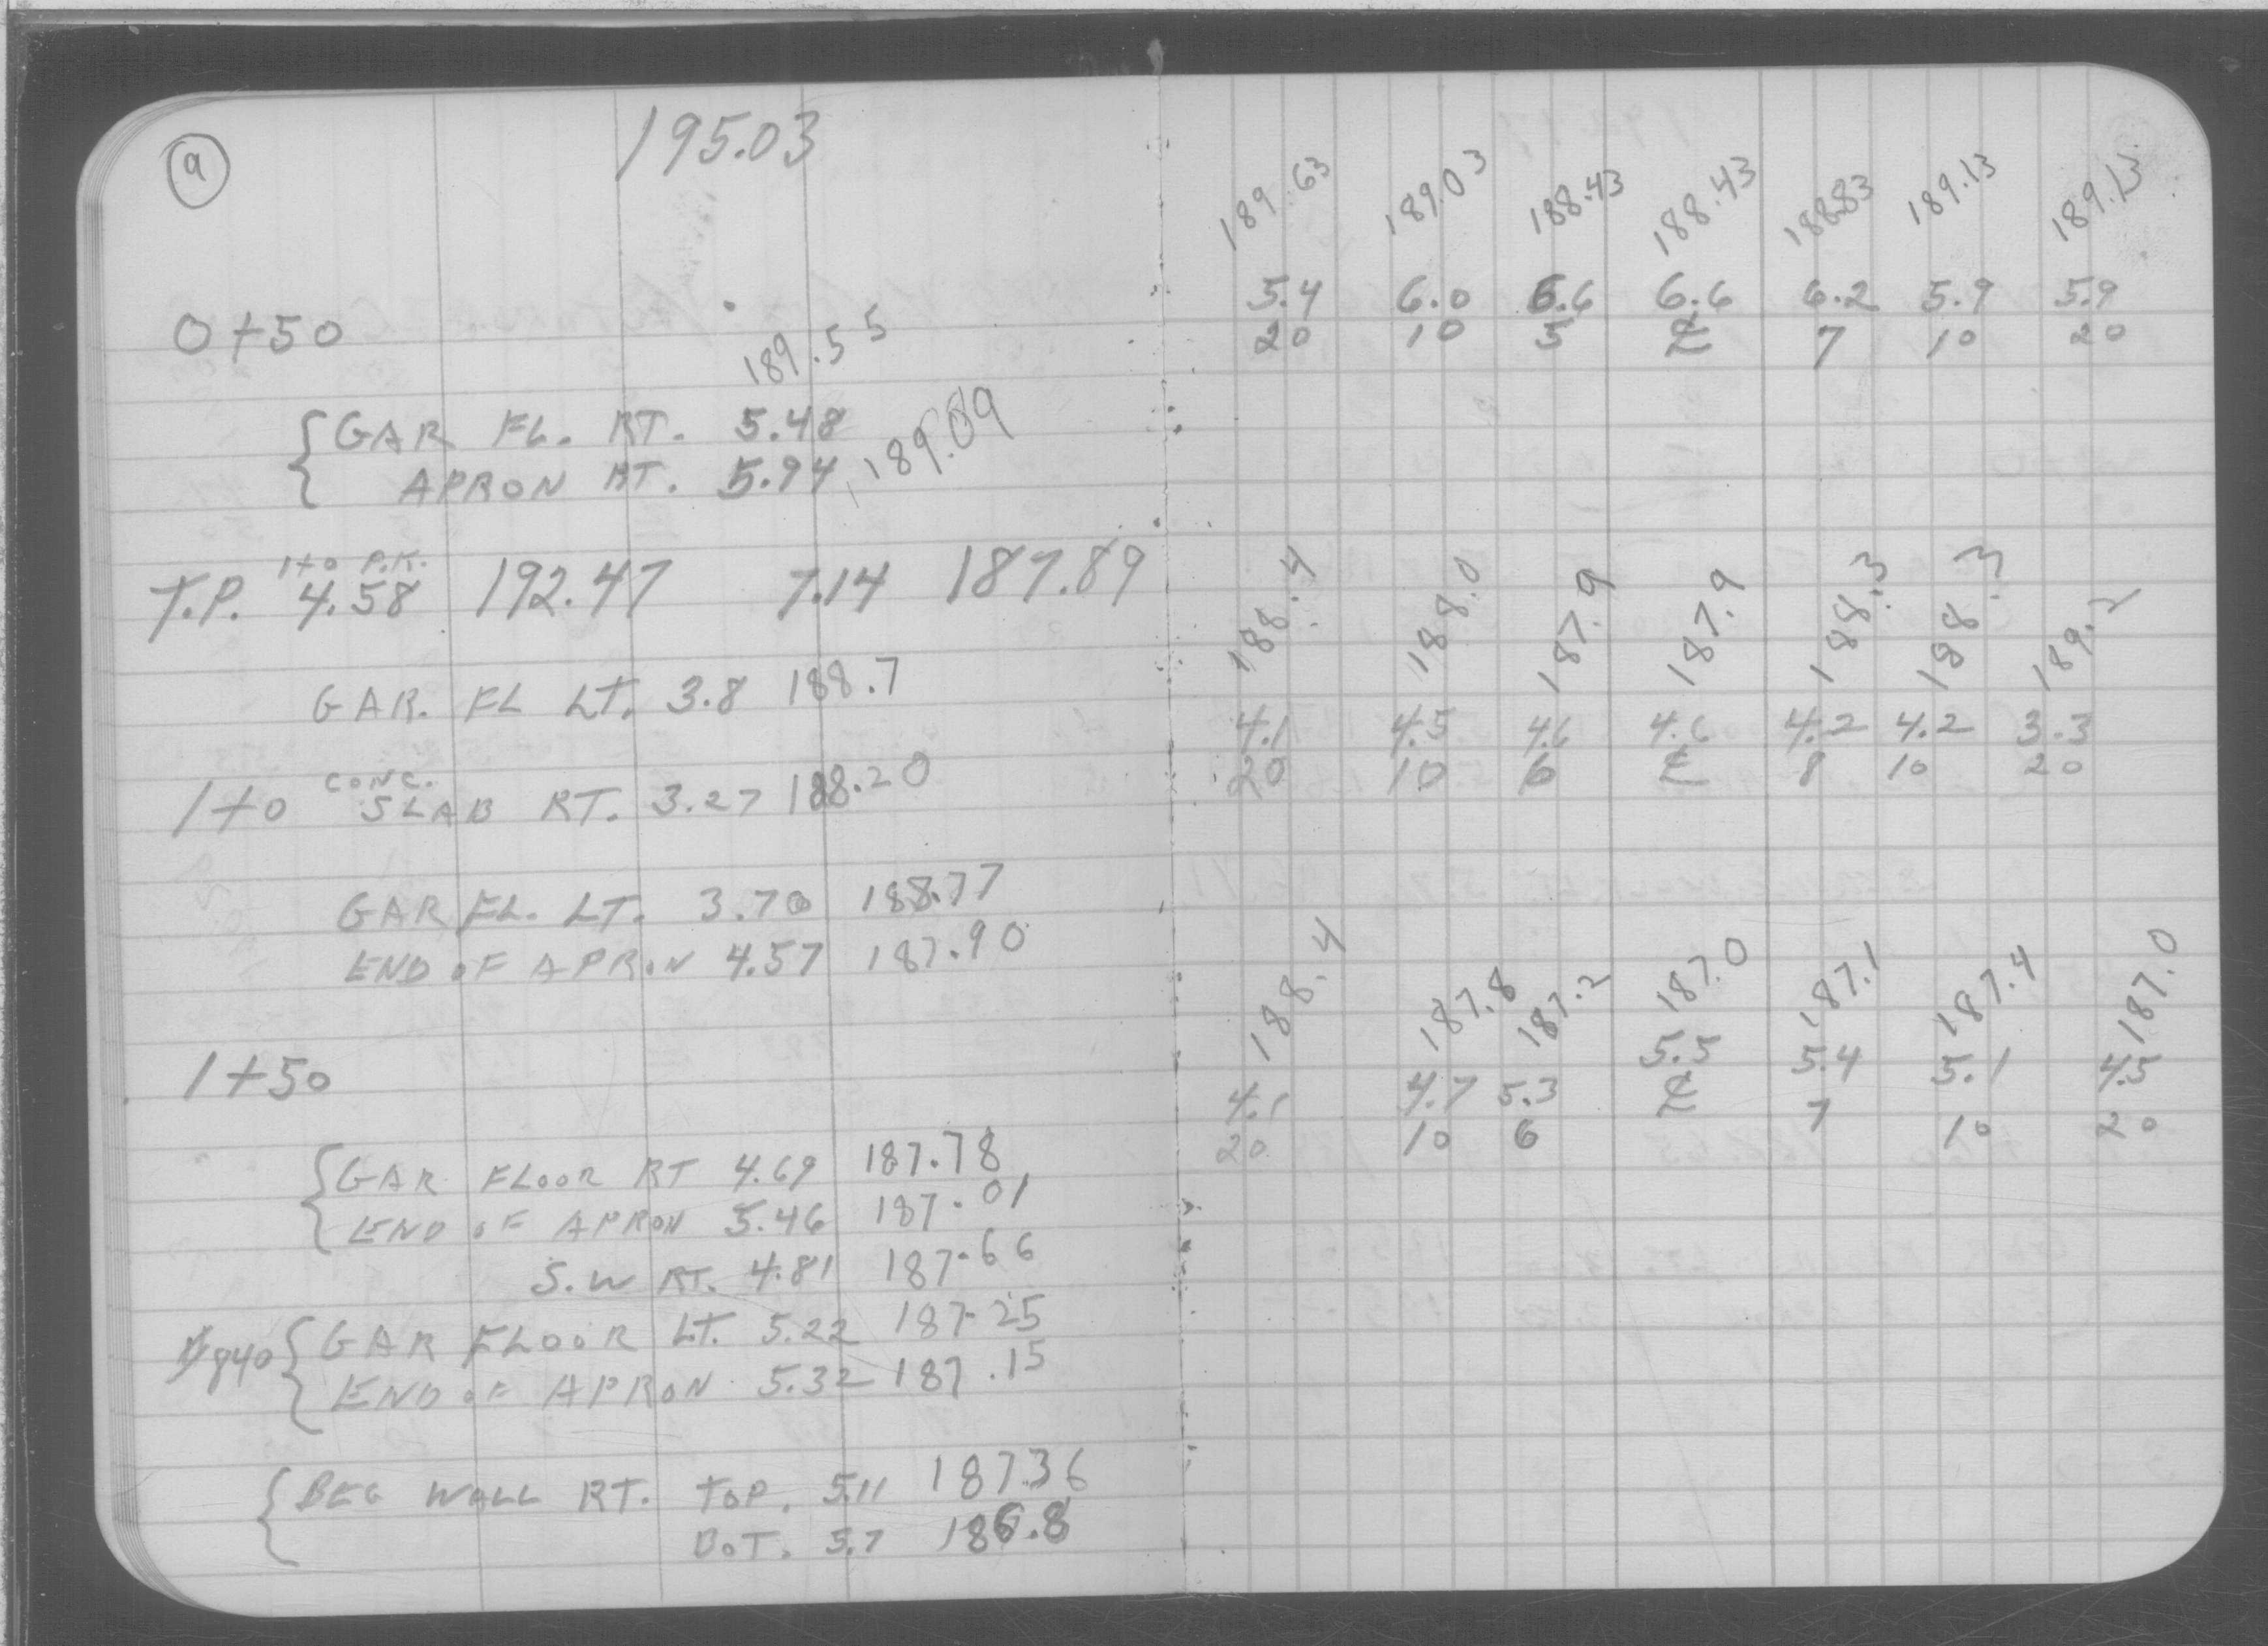 9
195.03
0+50
189.55
{GAR FL. RT. 5.48
APRON RT. 5.94 189.09
1+0 P.K.
T.P. 4.58 192.47 7.14 187.89
GAR. FL LT. 3.8 188.7
CONC.
1+0 SLAB RT. 3.27 188.20
GAR FL. LT. 3.70 188.77
END OF APRON 4.57 187.90
1+50
{GAR FLOOR RT 4.69 187.78
END OF APRON 5.46 187.01
S.W RT. 4.81 187.66
840 {GAR FLOOR LT. 5.22 187.25
END OF APRON 5.32 187.15
{BEG WALL RT. TOP. 5.11 187.36
BOT. 5.7 186.8
189.63 189.03 188.43 188.43 188.83 189.13 189.13
5.4 6.0 6.6 6.6 6.2 5.9 5.9
20 10 5 ℄ 7 10 20
188.4 188.0 187.9 187.9 188.3 188.3 189.2
4.1 4.5 4.6 4.6 4.2 4.2 3.3
20 10 6 ℄ 8 10 20
188.4 187.8 187.2 187.0 187.1 187.4 187.0
4.1 4.7 5.3 5.5 5.4 5.1 4.5
20 10 6 ℄ 7 10 20